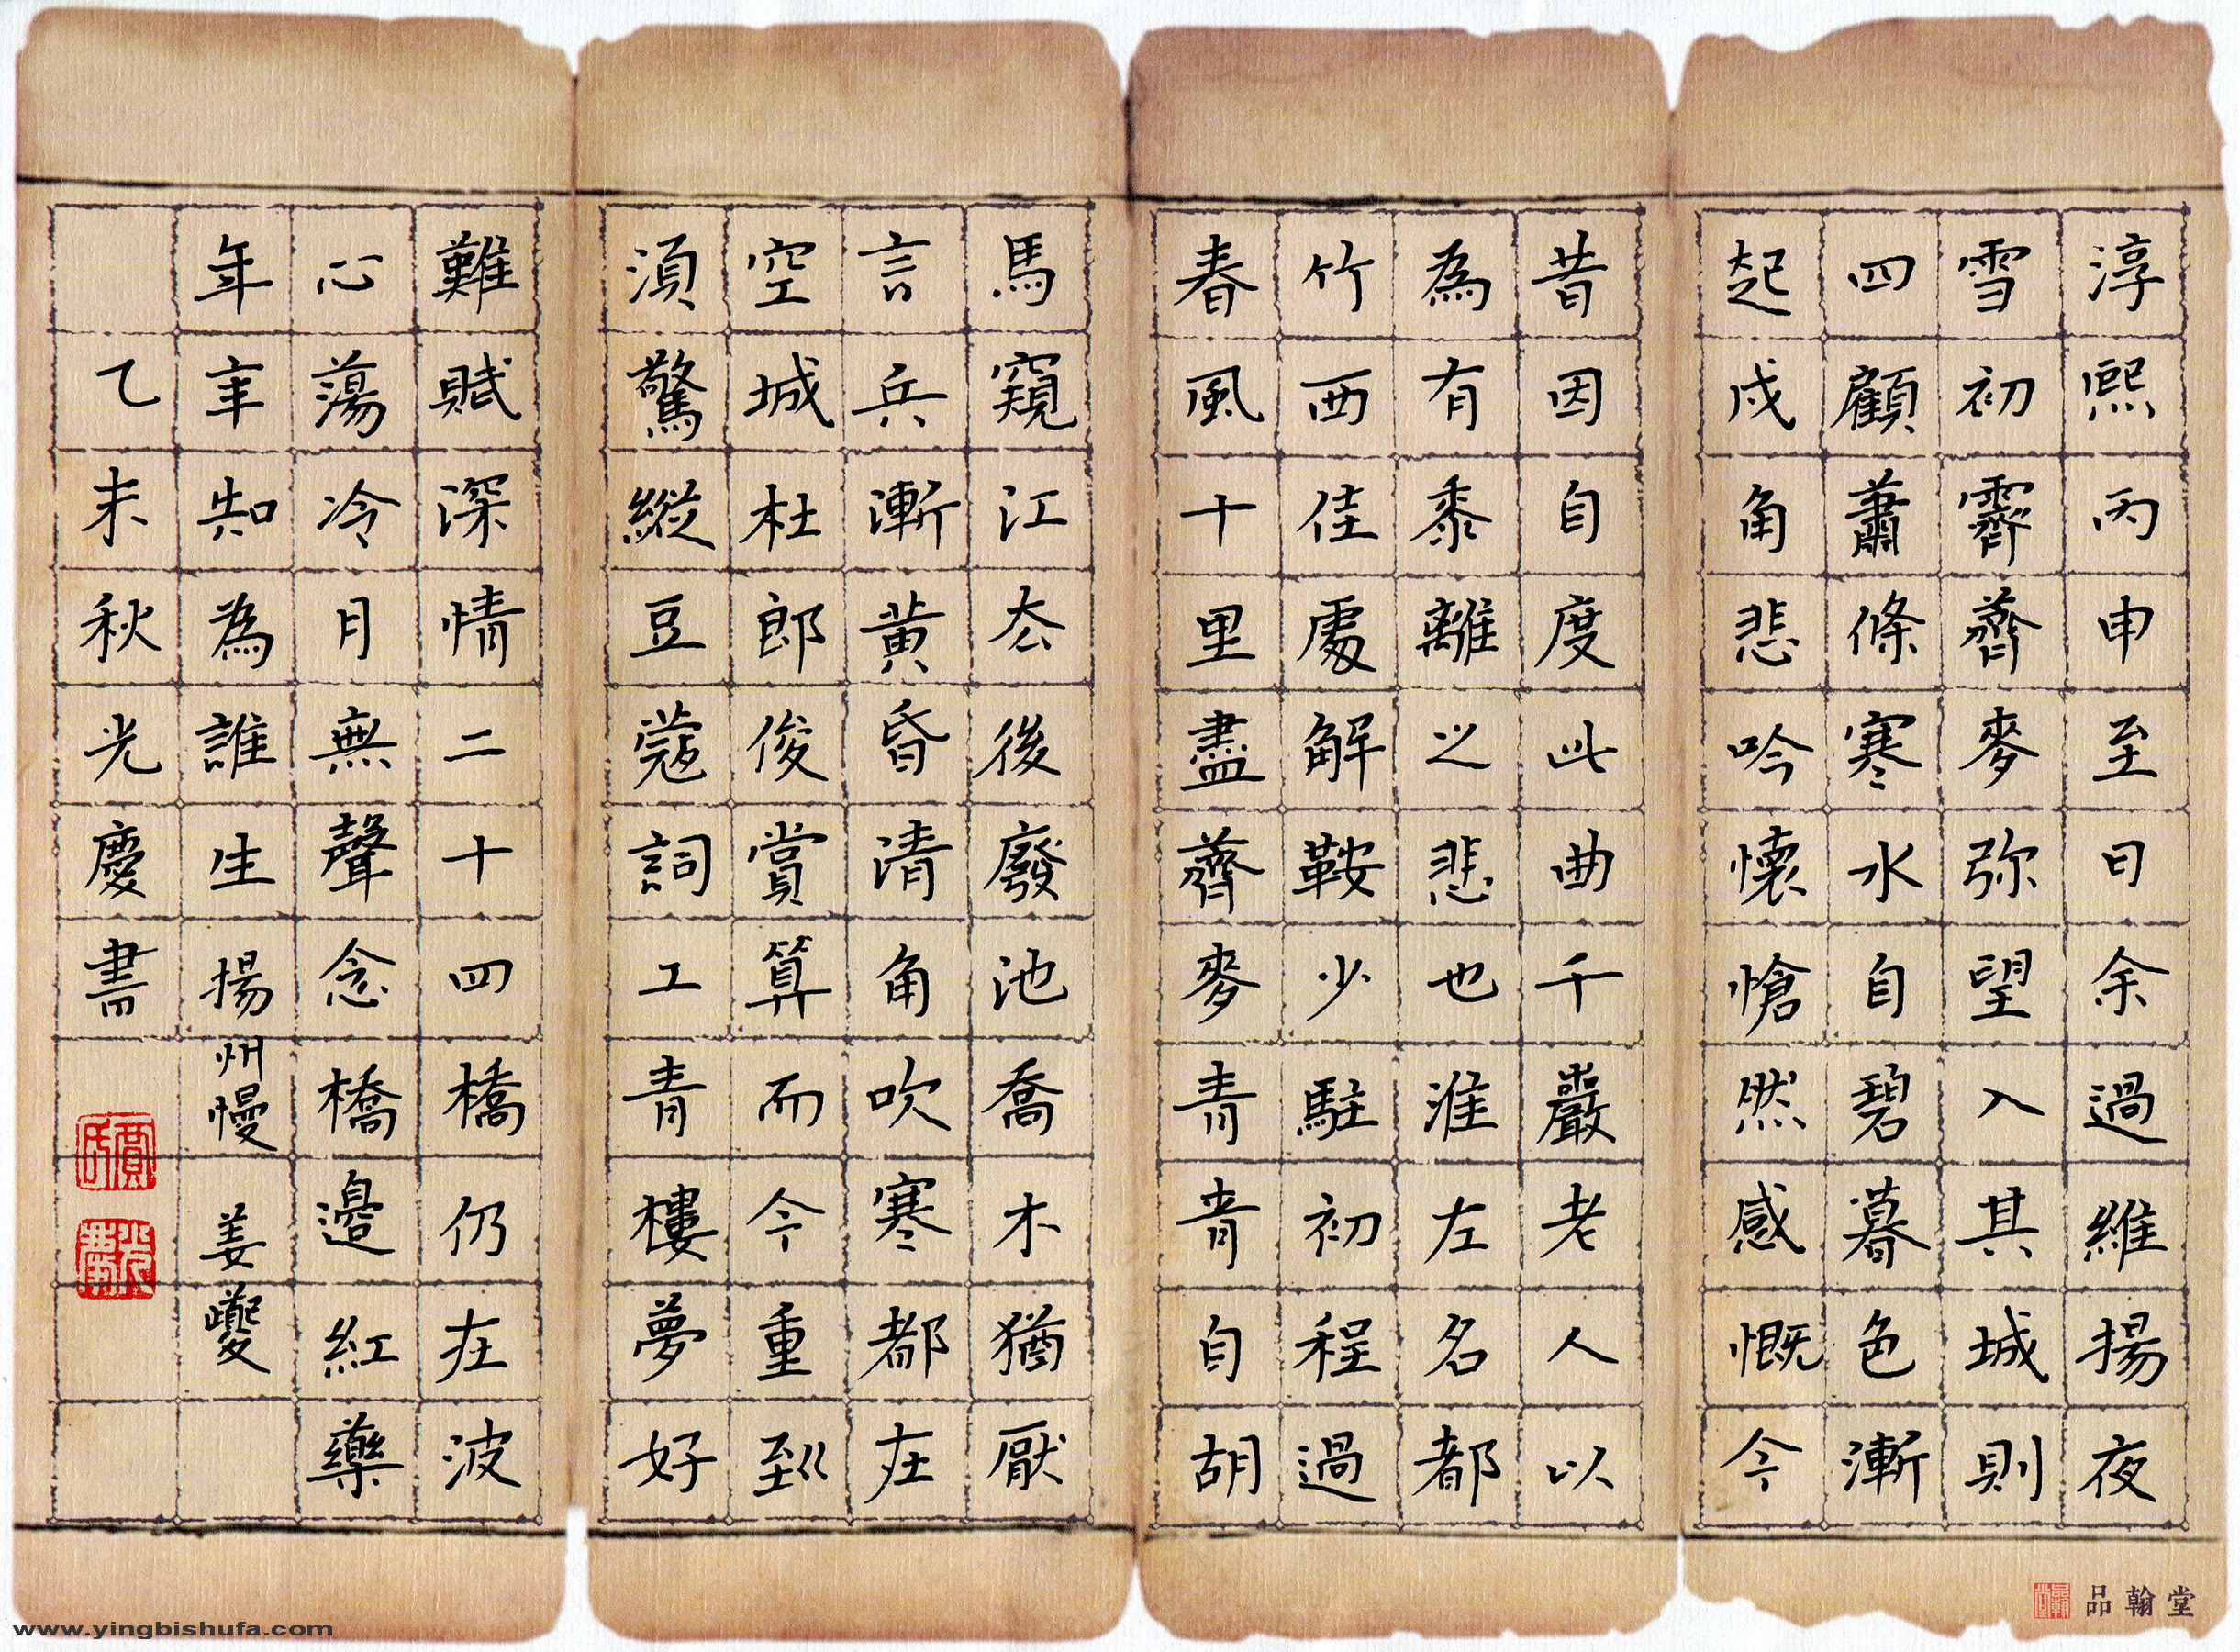 淳熙丙申至日余過維揚夜
雪初霽薺麥弥望入其城則
四顧蕭條寒水自碧暮色漸
起戍角悲吟懷愴然感慨今
昔因自度此曲千嚴老人以
為有黍離之悲也淮左名都
竹西佳處解鞍少駐初程過
春風十里盡薺麥青青自胡
馬窺江去後廢池喬木猶厭
言兵漸黃昏清角吹寒都在
空城杜郎俊賞算而今重到
須驚縱豆蔻詞工青樓夢好
難賦深情二十四橋仍在波
心蕩冷月無聲念橋邊紅藥
年年知為誰生揚州慢 姜夔
乙未秋光慶書
賈氏
光慶
品翰堂
www.yingbishufa.com